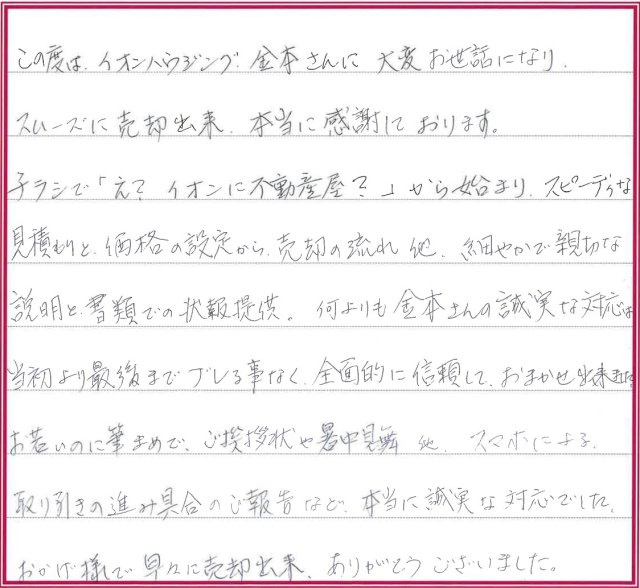 この度は、イオンハウジング 金本さんに 大変 お世話になり、
スムーズに 売却出来、本当に 感謝して おります。
チラシで「え？ イオンに不動産屋？」から始まり、スピーディな
見積もりと、価格の設定から、売却の流れ 他、細やかで親切な
説明と 書類での 状報提供。何よりも 金本さんの 誠実な対応は
当初より最後まで ブレる事なく、全面的に 信頼して、おまかせ 出来ました
お若いのに筆まめで、ご挨拶状や 暑中見舞 他、スマホによる、
取り引きの進み具合 のご報告など、本当に誠実な対応でした。
おかげ様で 早々に売却出来、ありがとう ございました。